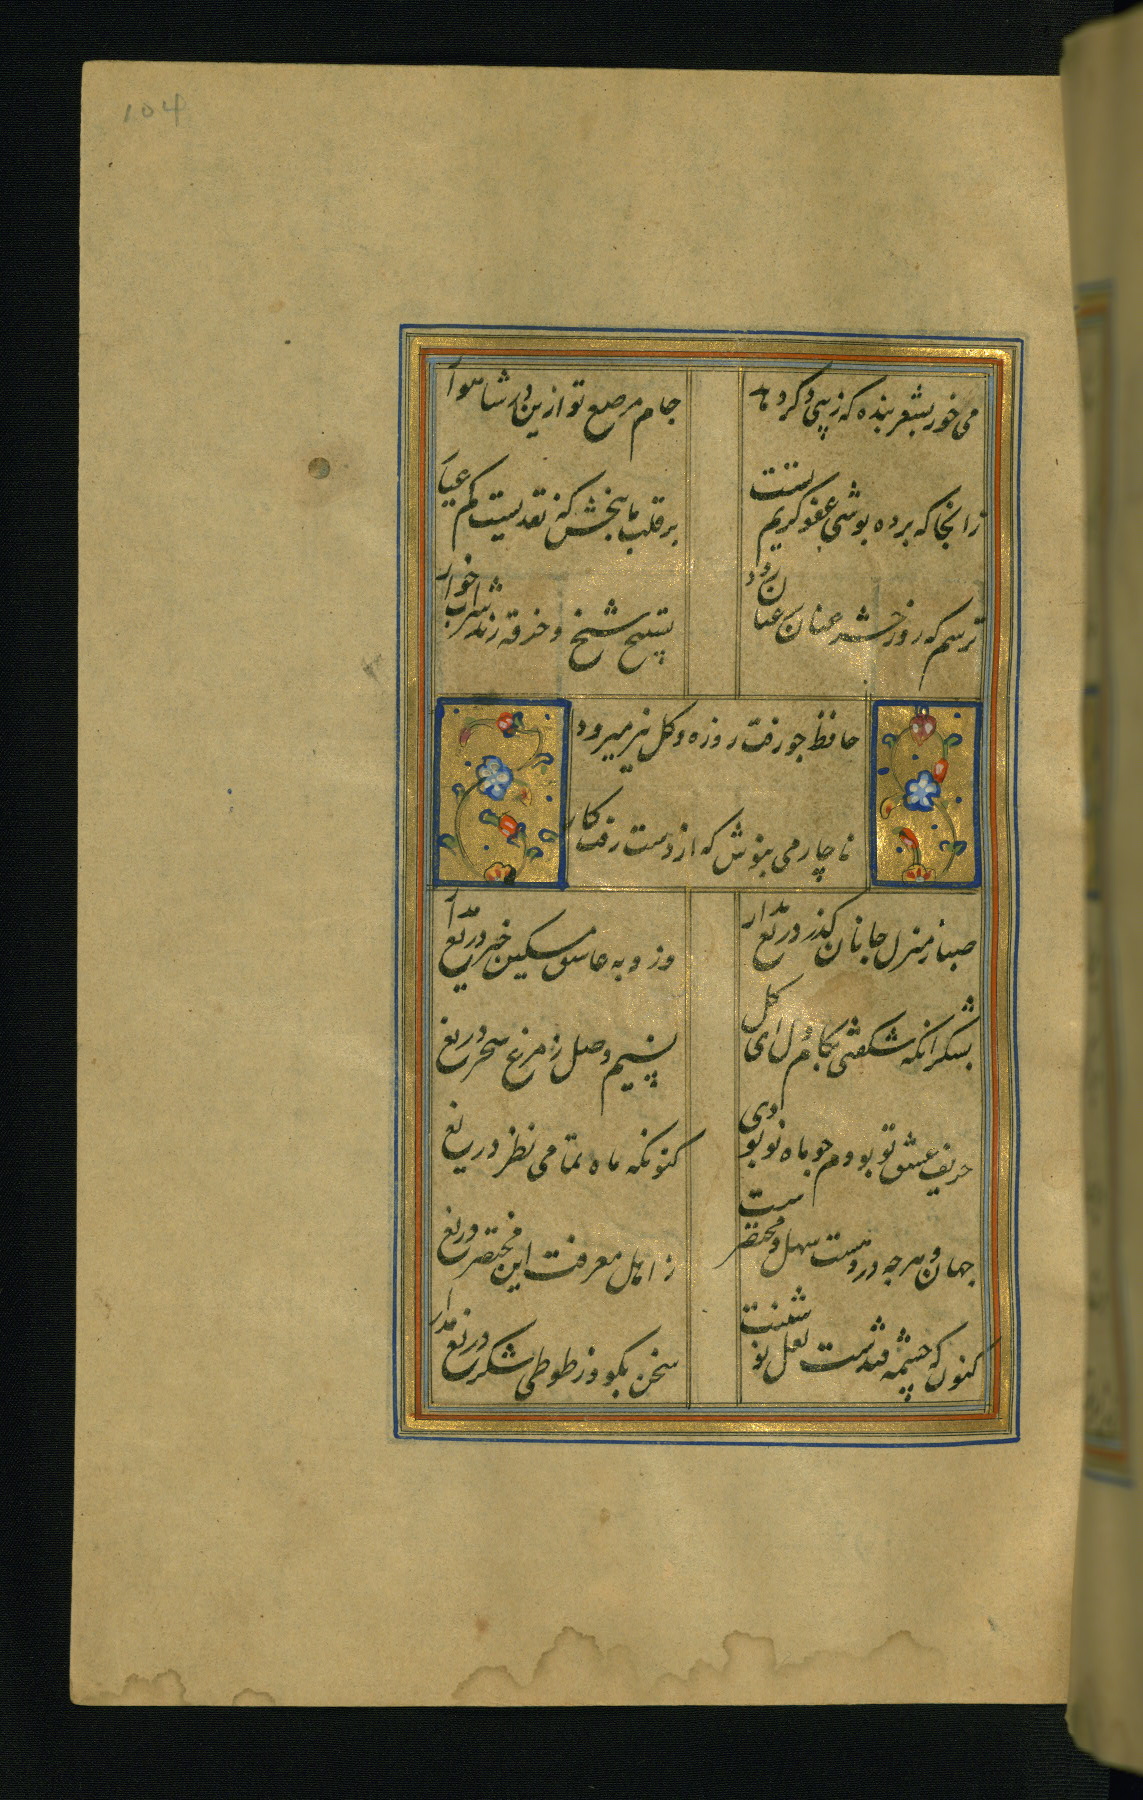 104
می خور بشعر بنده که زیبی دگر دهد
جام مرصع تو ازین در شاهوار
زانجا که برده پوشی عفو کریم تست
بر قلب ما ببخش که نقدیست کم عیار
ترسم که روز حشر عنان بر عنان رود
تسبیح شیخ و خرقه رند شرابخوار
حافظ چو رفت روزه و گل نیز میرود
ناچار می بنوش که از دست رفت کار
صبا ز منزل جانان گذر دریغ مدار
وزو به عاشق مسکین خبر دریغ مدار
بشکر آنکه شکفتی بکام دل ای گل
نسیم وصل ز مرغ سحر دریغ
حریف عشق تو بودم چو ماه نو بودی
کنونکه ماه تمامی نظر دریغ
جهان و هرچه دروست سهل و مختصرست
ز اهل معرفت این مختصر دریغ
کنون که چشمه قندست لعل نوشینت
سخن بگو و ز طوطی شکر دریغ مدار